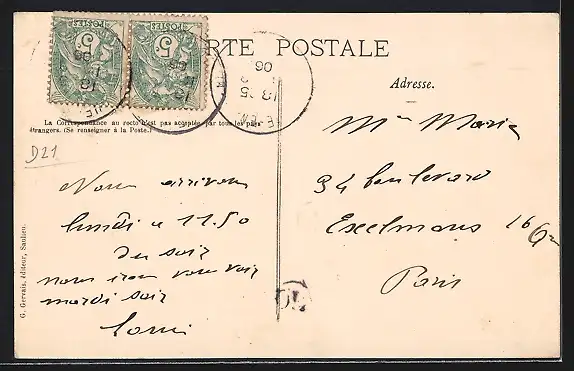 CARTE POSTALE
Adresse.
La Correspondance au recto n'est pas acceptée par tous les pays
étrangers. (Se renseigner à la Poste.)
D21
Nous arrivons
lundi à 11.50
du soir
nous irons vous voir
mardi soir
Mme Marie
34 boulevard
Exelmans 16
Paris
G. Gervais, éditeur, Saulieu.
POSTES
5c
POSTES
5c